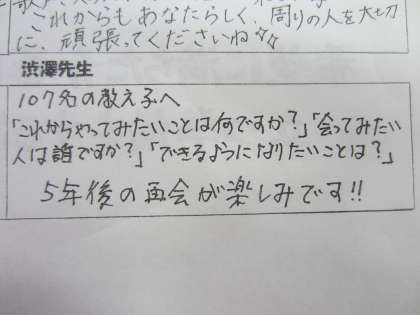 これからもあなたらしく、周りの人を大切
に、頑張ってくださいね☆☆
渋澤先生
107名の教え子へ
「これからやってみたいことは何ですか?」「会ってみたい
人は誰ですか?」「できるようになりたいことは?」
5年後の再会が楽しみです!!